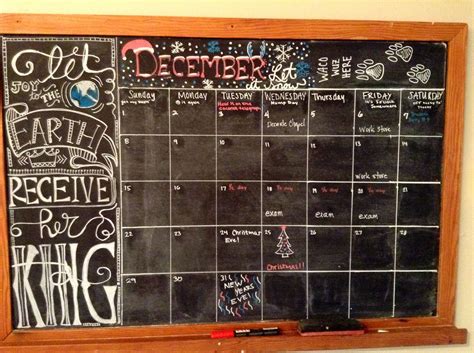 let
JOY to THE
EARTH
RECEIVE
her
KING
DECEMBER
Let
it snow
WACO
WUZ
HERE
Sunday Monday TUESDAY Wednesday Thursday FRIDAY SATURDAY
Hump Day
1 2 3 4 5 6 7
Chapel
Work store
8 9 10 11 12 13 14
Work store
15 16 17 18 19 20 21
½ day ½ day ½ day
exam exam exam
22 23 24 Christmas 25 26 27 28
Eve!
Christmas!!
29 30 31
NEW
YEARS
EVE!